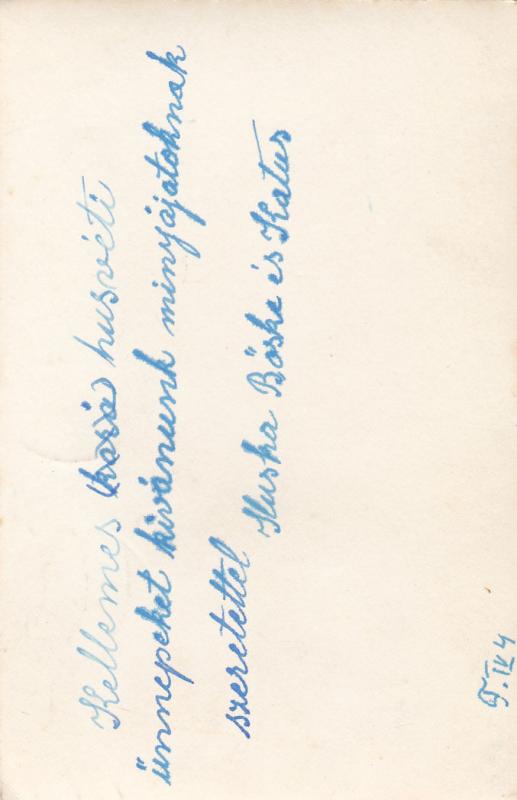 Kellemes húsvéti
ünnepeket kivánunk minyájatoknak
szeretettel Iluska Böske és Katus
T. IV 4